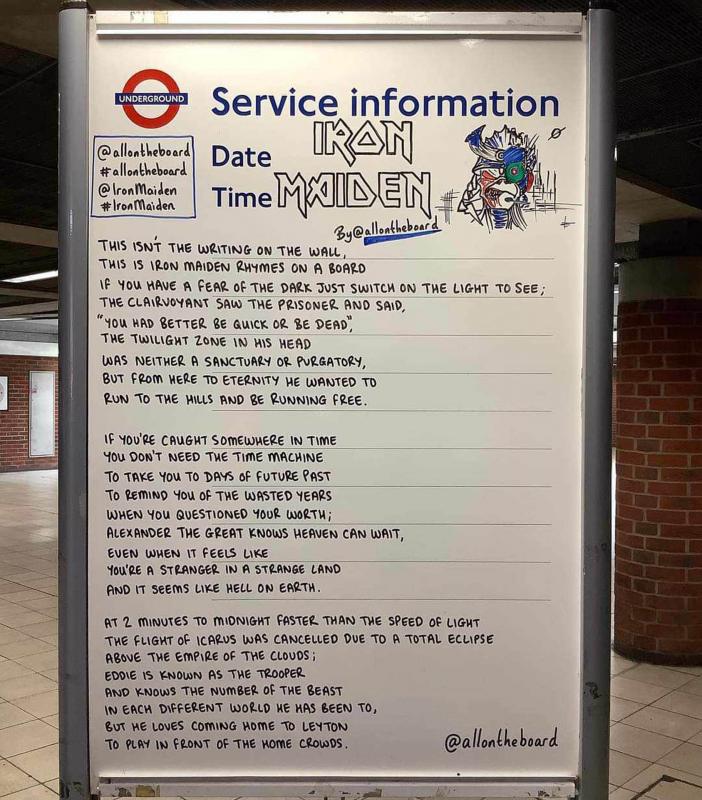 UNDERGROUND
Service information
@allontheboard
#allontheboard
@IronMaiden
#IronMaiden
Date
Time
IRON
MAIDEN
By@allontheboard
THIS ISN'T THE WRITING ON THE WALL,
THIS IS IRON MAIDEN RHYMES ON A BOARD
IF YOU HAVE A FEAR OF THE DARK JUST SWITCH ON THE LIGHT TO SEE;
THE CLAIRVOYANT SAW THE PRISONER AND SAID,
"YOU HAD BETTER BE QUICK OR BE DEAD",
THE TWILIGHT ZONE IN HIS HEAD
WAS NEITHER A SANCTUARY OR PURGATORY,
BUT FROM HERE TO ETERNITY HE WANTED TO
RUN TO THE HILLS AND BE RUNNING FREE.
IF YOU'RE CAUGHT SOMEWHERE IN TIME
YOU DON'T NEED THE TIME MACHINE
TO TAKE YOU TO DAYS OF FUTURE PAST
TO REMIND YOU OF THE WASTED YEARS
WHEN YOU QUESTIONED YOUR WORTH;
ALEXANDER THE GREAT KNOWS HEAVEN CAN WAIT,
EVEN WHEN IT FEELS LIKE
YOU'RE A STRANGER IN A STRANGE LAND
AND IT SEEMS LIKE HELL ON EARTH.
AT 2 MINUTES TO MIDNIGHT FASTER THAN THE SPEED OF LIGHT
THE FLIGHT OF ICARUS WAS CANCELLED DUE TO A TOTAL ECLIPSE
ABOVE THE EMPIRE OF THE CLOUDS;
EDDIE IS KNOWN AS THE TROOPER
AND KNOWS THE NUMBER OF THE BEAST
IN EACH DIFFERENT WORLD HE HAS BEEN TO,
BUT HE LOVES COMING HOME TO LEYTON
TO PLAY IN FRONT OF THE HOME CROWDS.
@allontheboard